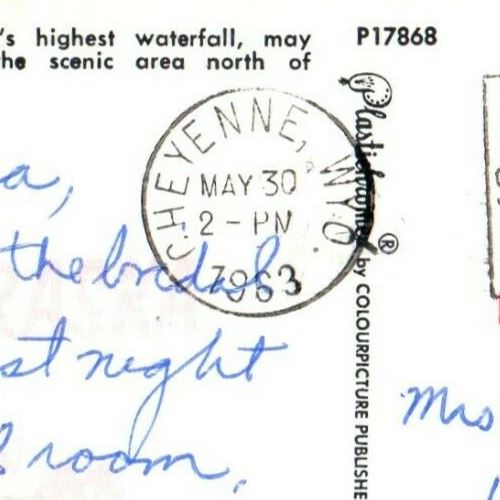 's highest waterfall, may
the scenic area north of
P17868
CHEYENNE, WYO.
MAY 30
2 - PM
1963
Plastichrome®
by COLOURPICTURE PUBLISHE
a,
the bridal
st night
room.
Mrs